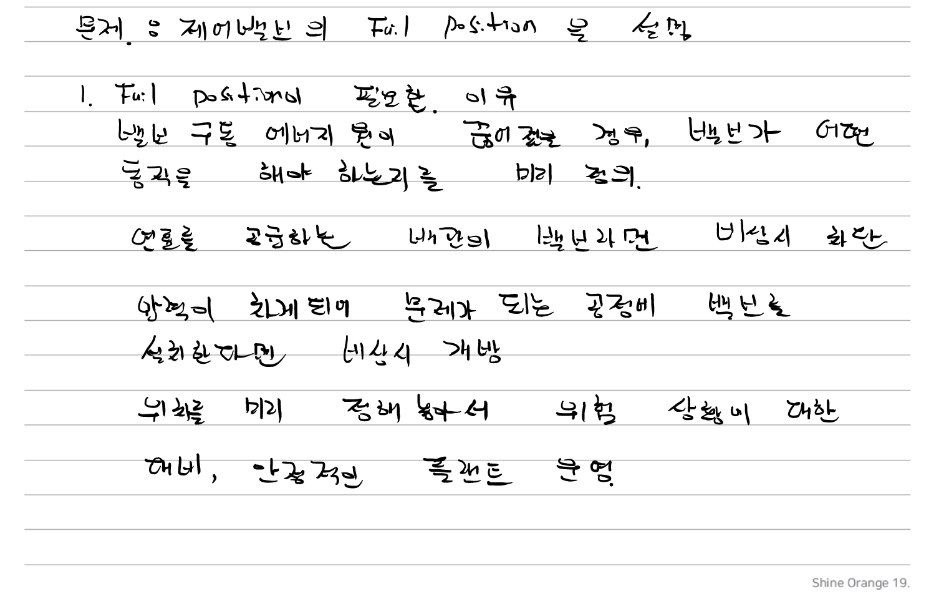 문제. 제어밸브의 Fail position 을 설명
1. Fail position이 필요한 이유
밸브 구동 에너지원이 끊어졌을 경우, 밸브가 어떤
동작을 해야 하는지를 미리 정의.
연료를 공급하는 배관의 밸브라면 비상시 차단
압력이 차게되어 문제가 되는 공정에 밸브를
설치한다면 비상시 개방
위치를 미리 정해 놓아서 위험 상황에 대한
대비, 안정적인 플랜트 운영.
Shine Orange 19.